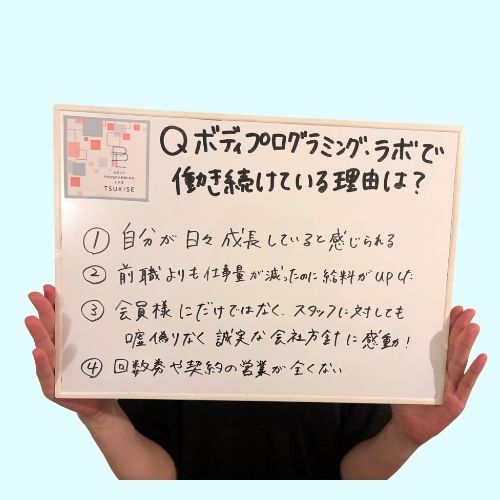 BODY
PROGRAMMING
LAB
TSUKISE
Q ボディプログラミング・ラボで
働き続けている理由は？
① 自分が日々成長していると感じられる
② 前職よりも仕事量が減ったのに給料がUPした
③ 会員様にだけではなく、スタッフに対しても
嘘偽りなく誠実な会社方針に感動！
④ 回数券や契約の営業が全くない